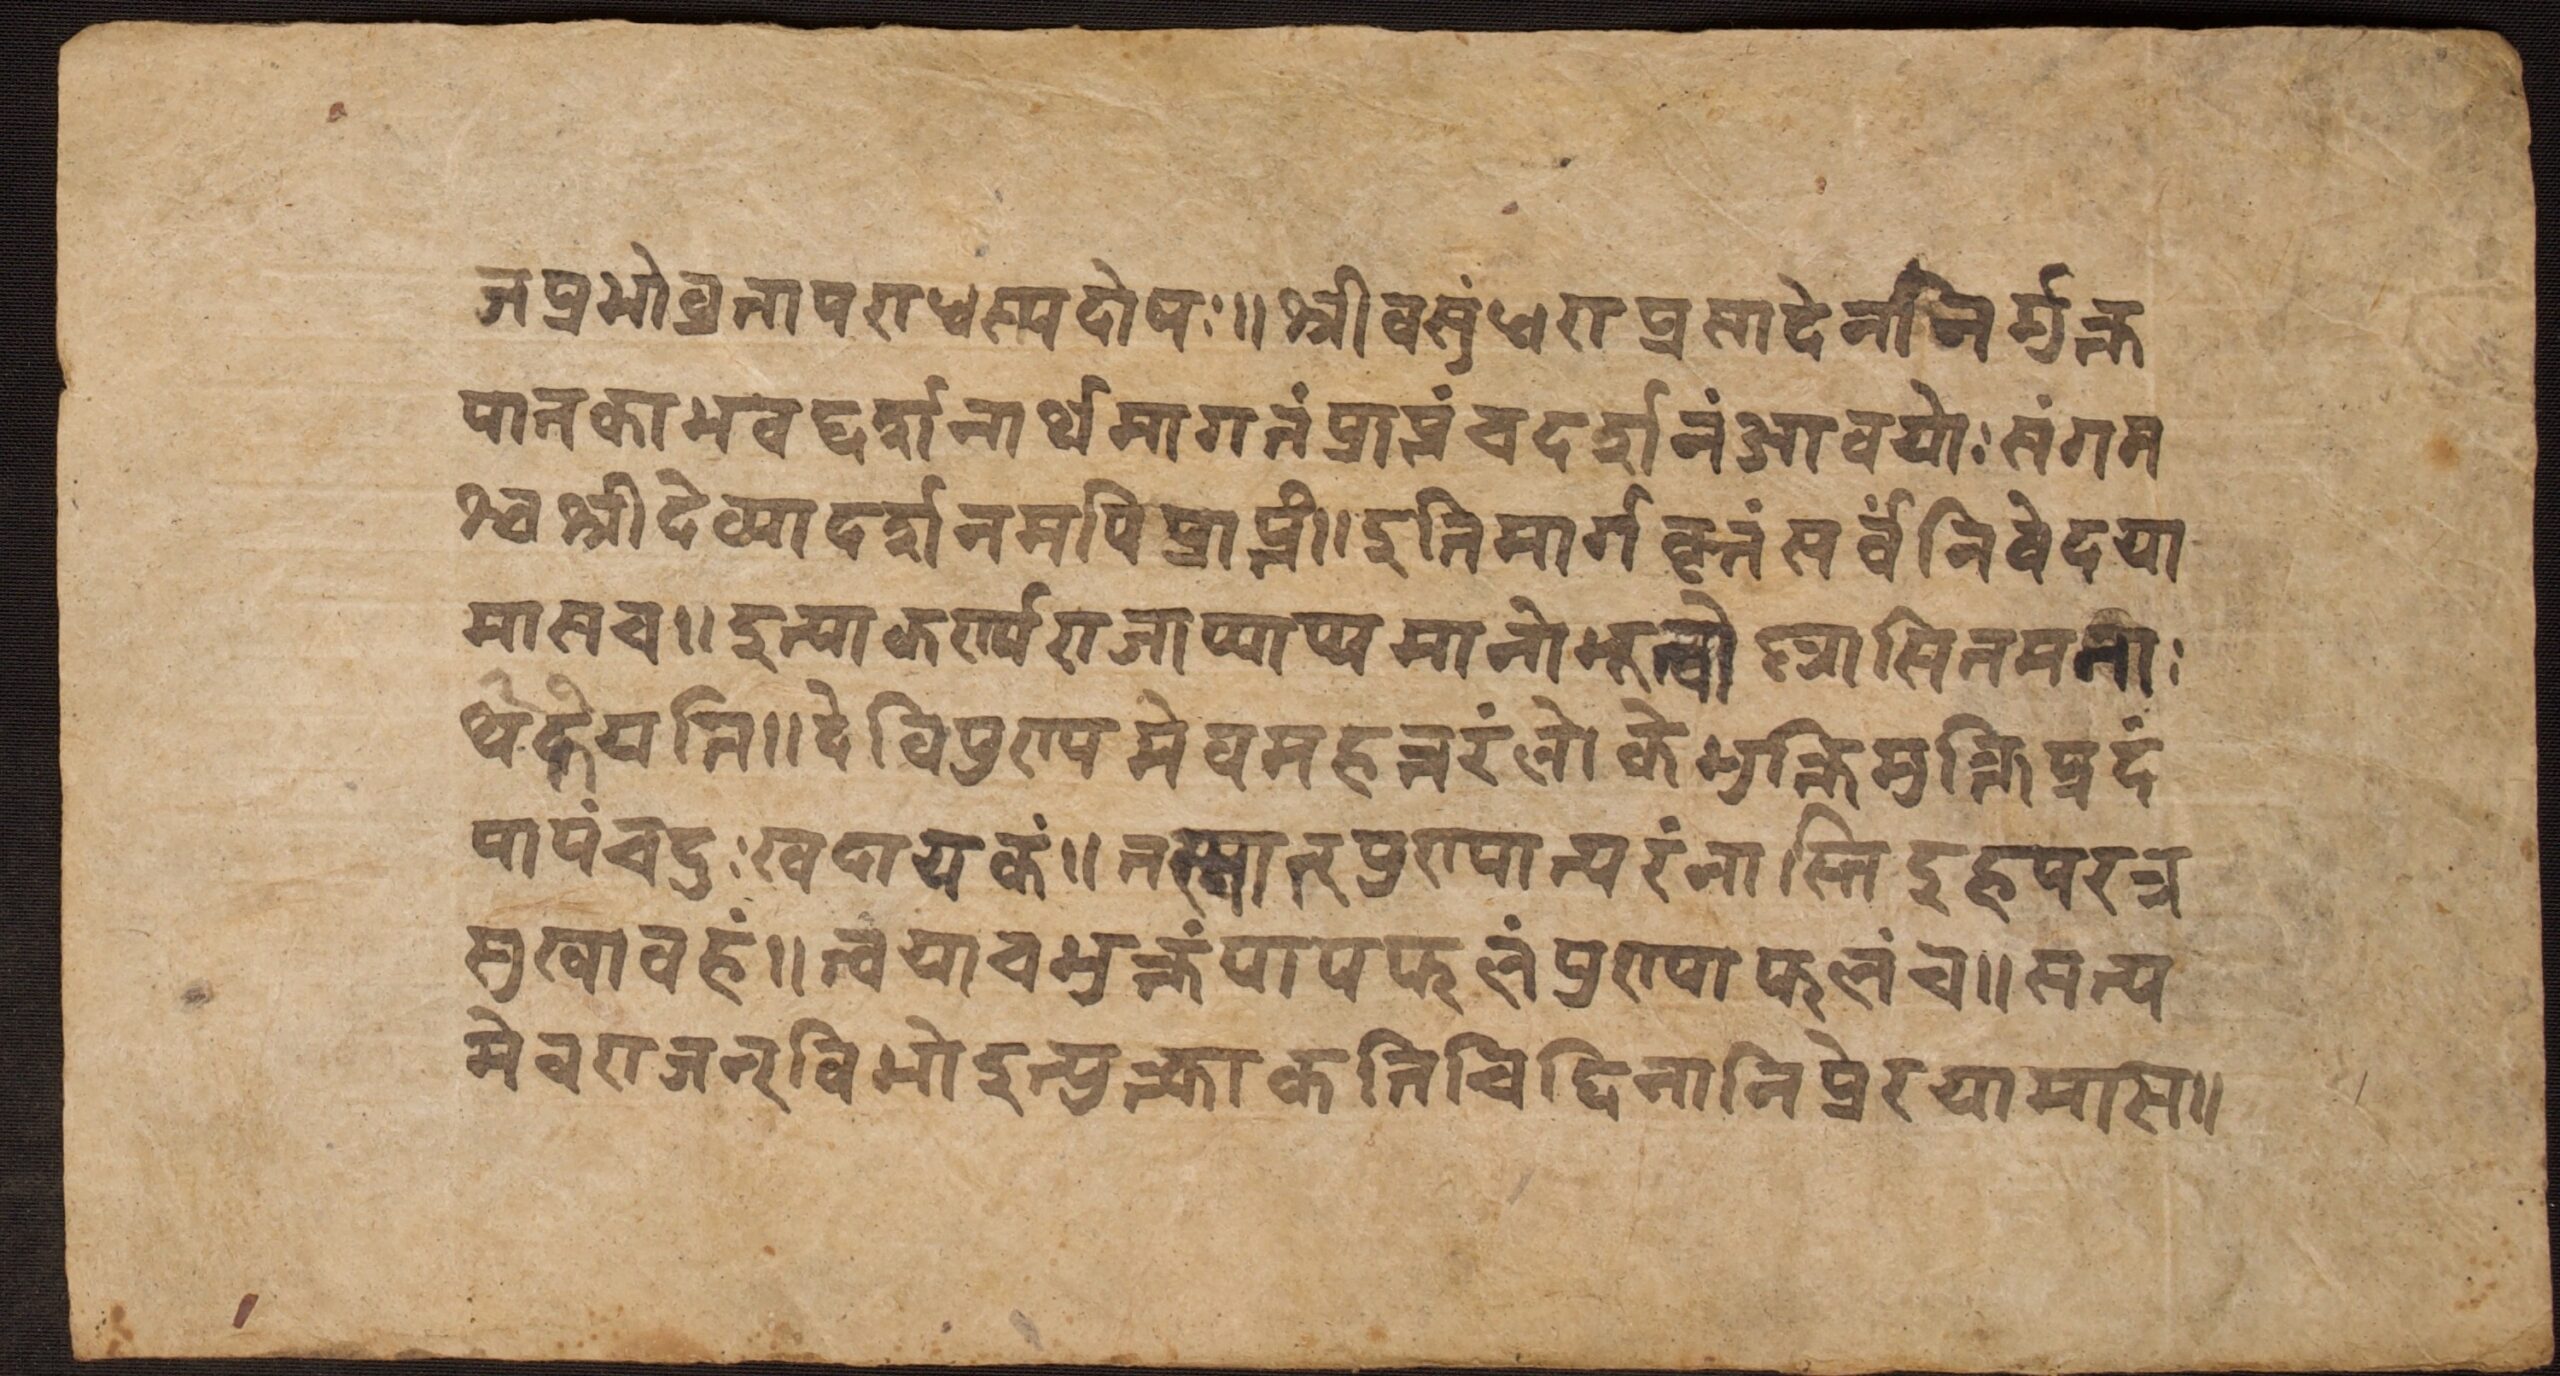 जप्रभोव्रतापराधस्य दोषः॥ श्रीवसुंधराप्रसादेन निर्मुक्त
पातका भवद्दर्शनार्थमागतं प्राप्तं च दर्शनं आवयोः संगम
श्च श्रीदेव्या दर्शनमपि प्राप्तं॥ इति मार्गवृतं सर्वं निवेदया
मास च॥ इत्याकर्ण्य राजा वाष्पमानो भूत्वो त्रासितमनाः
देवि पुण्यमेव महत्तरं लोके भुक्तिमुक्तिप्रदं
पापं च दुःखदायकं॥ तस्मात् पुण्यात्परं नास्ति इह परत्र
सुखावहं॥ त्वया च भुक्तं पापफलं पुण्याफलं च॥ सत्य
मेव राजन् विभो इत्युक्त्वा कतिचिद्दिनानि प्रेरयामास॥